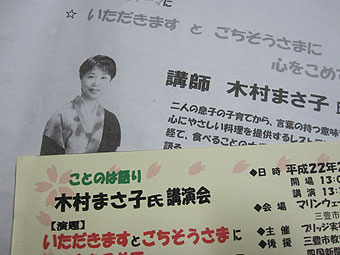 に
☆ いただきます と ごちそうさまに
心をこめて
講師 木村まさ子 氏
二人の息子の子育てから、言葉の持つ意味
心にやさしい料理を提供するレスト
経て、食べることの
語る
ことのは語り
木村まさ子氏 講演会
【演題】
いただきますとごちそうさまに
◆日 時 平成22年2
開 場 13:0
講 演 13:
◆会 場 マリンウェー
三豊市
◆主 催 ブリッジ実
◆後 援 三豊市教
四国新聞